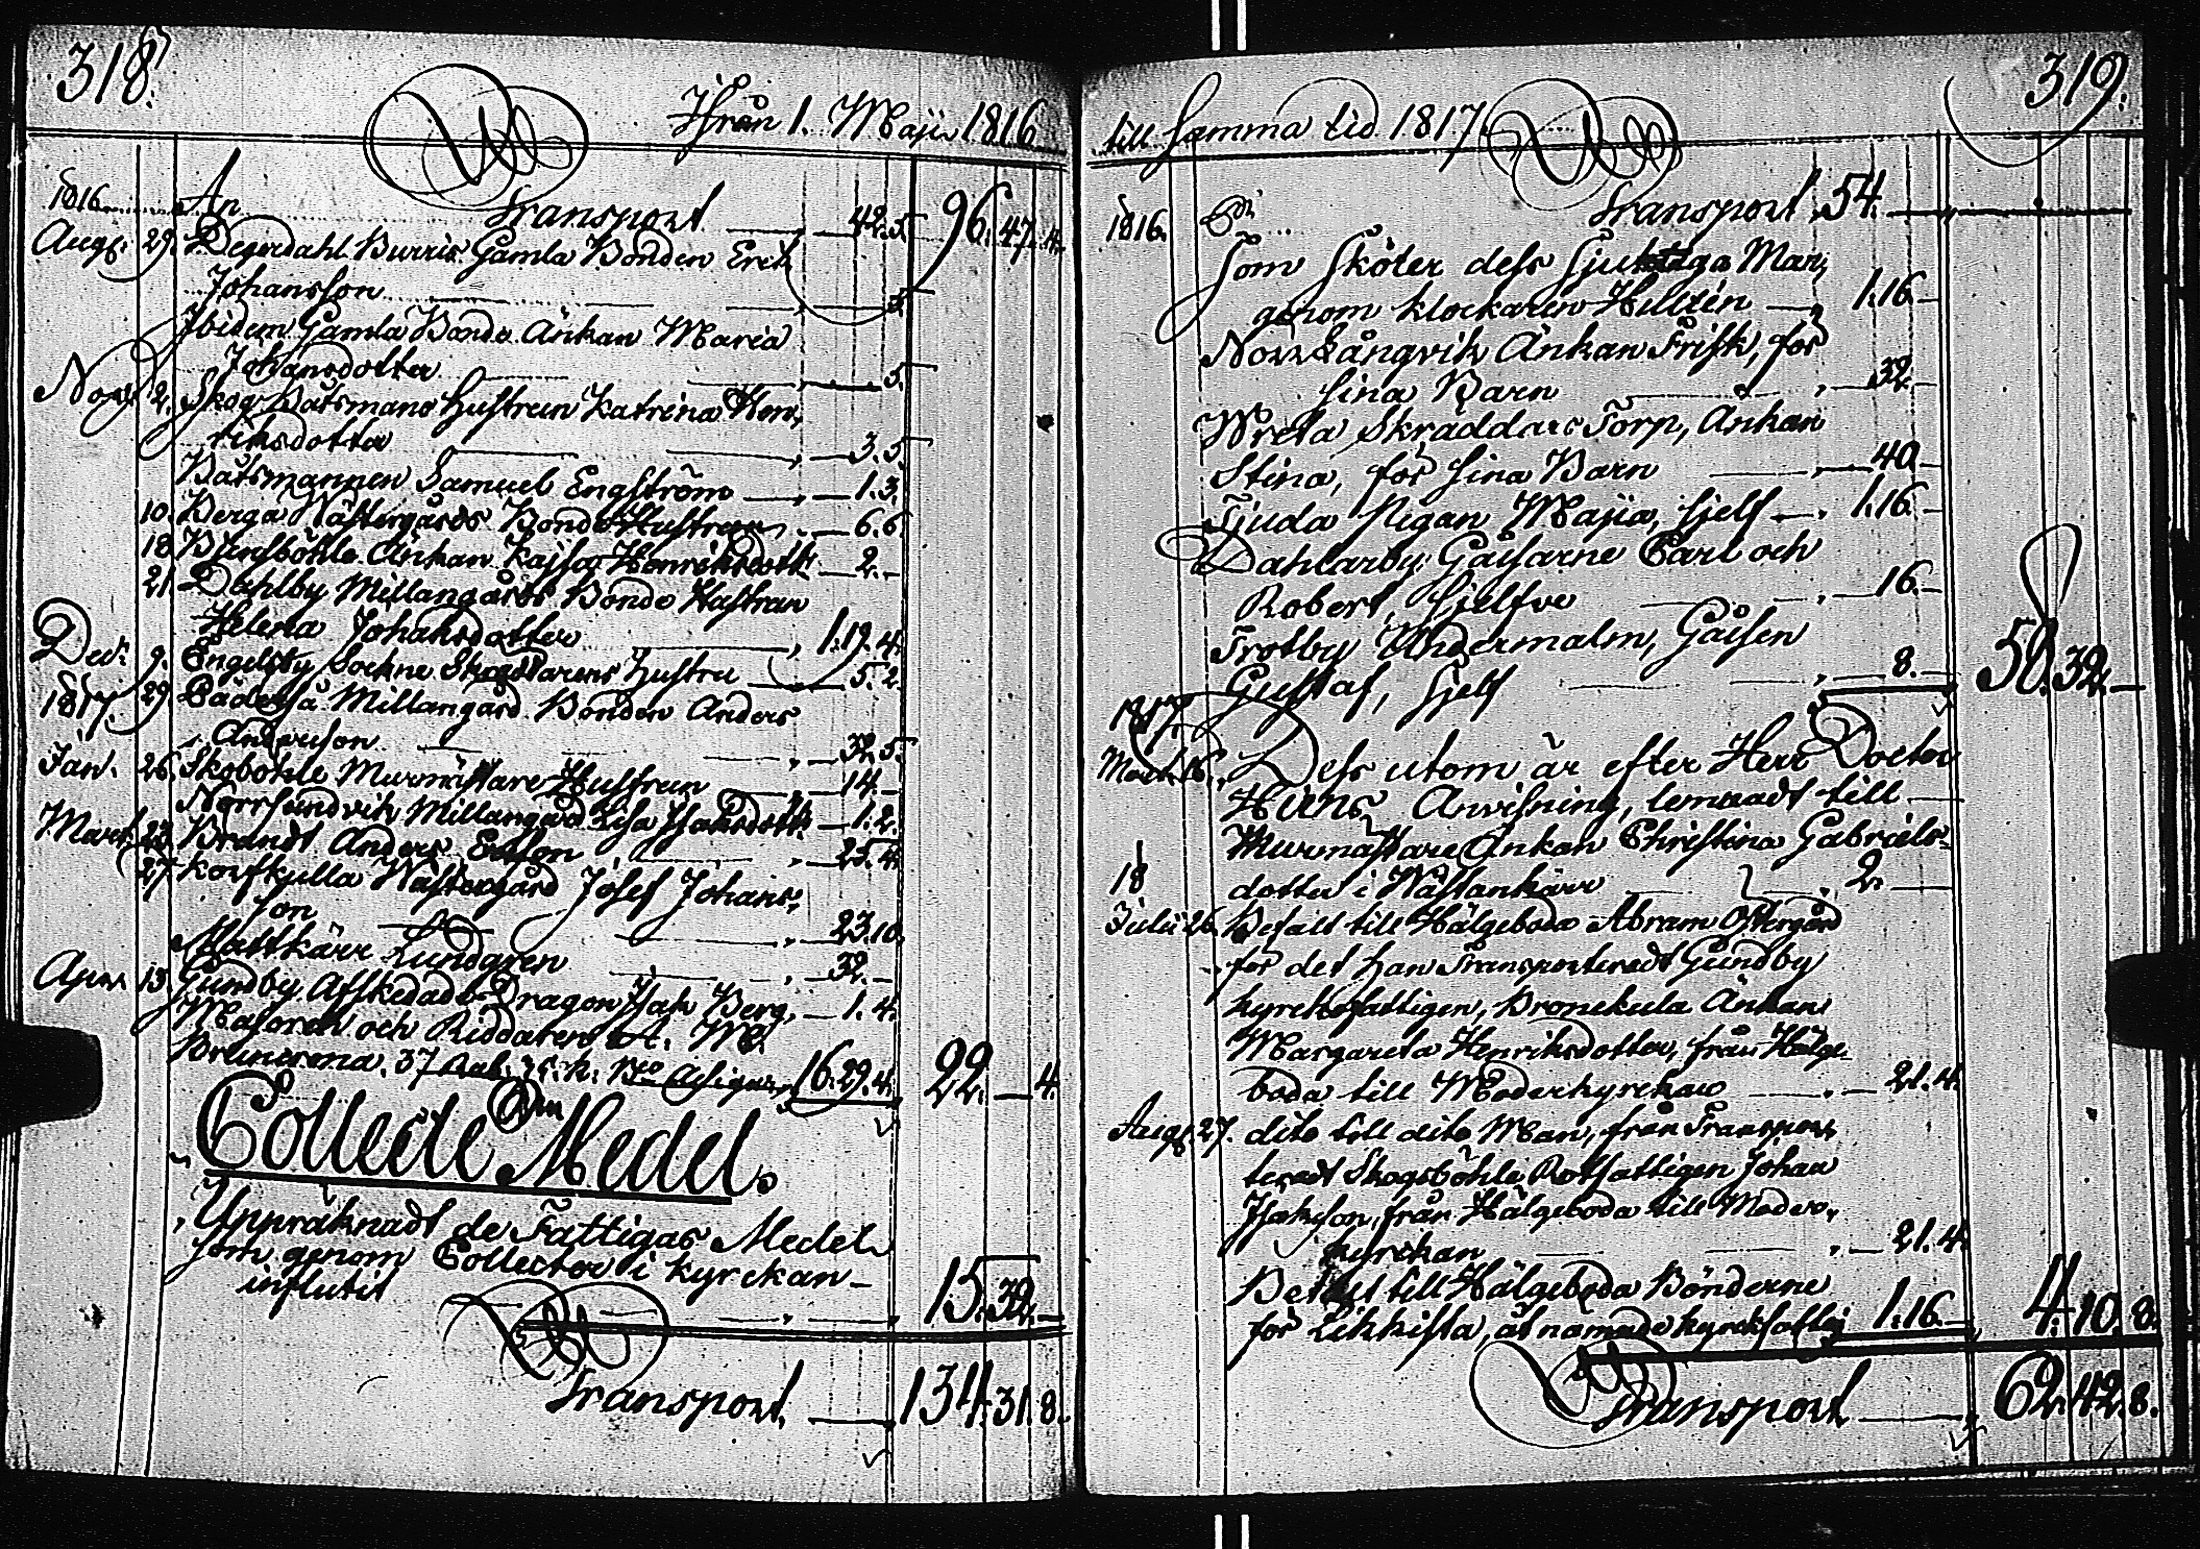 318.
Ifrån 1. Maji 1816
1816 An Transport 42. 5. 96. 47. 4.
Aug: 29. Degerdahl Burris Gamla Bonden Erik
Johansson 5.
Ibidem Gamla Bonde Änkan Maria
Johansdotter 5.
Nov. 2. Skogs Båtsmans Hustrun Katrina Hen,
riksdotter 3. 5.
Båtsmannen Samuel Engström 1. 3.
10. Berga Wästergårds Bonde Hustrun 6. 6.
18. Änkan Kajsa Henriksdott: 2.
21. Dahlby Millangårds Bonde Hustrun
Helena Johansdotter 1. 19. 4.
Dec: 9. Engelsby Sockne Skräddarens Hustru 5. 2.
1817. 29. Millangård Bonden Anders
Andersson 32. 5.
Jan. 26. Skobohle Murmästare Hustrun 14.
Norrsundvik Millangård Lisa Isaksdott: 1. 2.
Mart. 23. Brandt Anders Ersson 25. 4.
27. Wästergård Josef Johans,
son 23. 10.
Mattkärr Lundgren 32.
Apr. 13. Gundby Afskedade Dragon Isak Berg 1. 4.
Majoren och Riddaren A. W.
37 16. 29. 4. 22. 4.
Collecte Medel.
Uppräknadt de Fattigas Medel
som genom Collecter i kyrckan
influtit 15. 32.
Transport 134. 31. 8.
319.
till samma tid 1817.
1816. Transport 54.
Som sköter dess Mar;
genom klockaren Hulten 1. 16.
Norrlångvik Änkan Frisk, för
sina Barn 32.
Wreta Skräddars Torp, Änkan
Stina, för sina Barn 40.
Tjuda Pigan Maja, sjelf 1. 16.
Dahlarby Gåssarne Carl och
Robert, sjelfve 16.
Trotby Undermalm, Gåssen
Gustaf, sjelf 8. 58. 32.
1817
Mart. 16. Dess utom är efter Herr Doctor
Anvisning, lemnadt till
Murmästare Änkan Christina Gabriels-
dotter i Wästankärr 2.
18
Julii 26. Betalt till Hälgeboda Abram Östergård
för det han Transporteradt Gundby
kyrckofattigen, Bronekula Änkan
Margareta Henriksdotter, från Hälge-
boda till Moderkyrckan 21. 4.
Aug. 27. dito till dito Man, från Transpor,
teradt Skogsböhle Rotfattigen Johan
Isaksson, från Hälgeboda till Moder,
kyrckan 21. 4.
Betalt till Hälgeboda Bönderne
för Likkista, åt nämnde 1. 16. 4. 10. 8.
Transport 62. 42. 8.